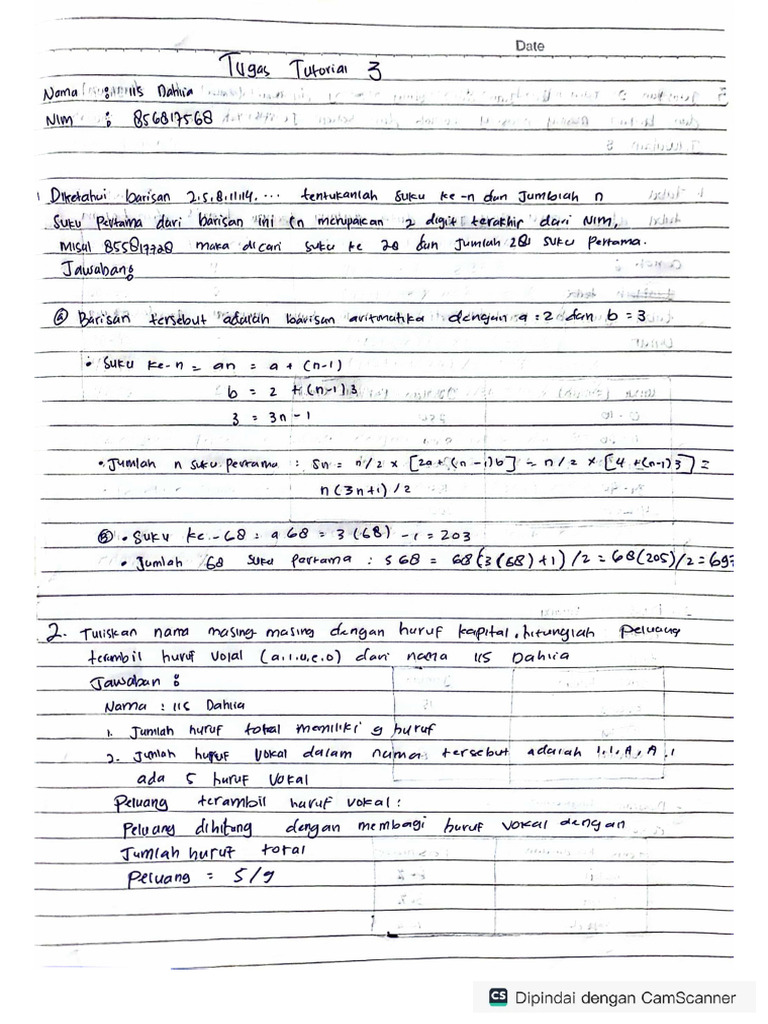 Date
Tugas Tutorial 3
Nama : IIS Dahlia
NIM : 856817568
1 Diketahui barisan 2.5.8.11.14. ... tentukanlah suku ke-n dan Jumblah n
suku Pertama dari barisan ini (n merupakan 2 digit terakhir dari NIM,
Misal 855817728 maka dicari suku ke 28 dan Jumlah 28 suku pertama.
Jawaban:
(a) Barisan tersebut adalah barisan aritmatika dengan a = 2 dan b = 3
• Suku ke-n = an = a + (n-1)
b = 2 + (n-1) 3
3 = 3n - 1
• Jumlah n suku pertama : Sn = n/2 × [2a + (n-1)b] = n/2 × [4 + (n-1)3] =
n(3n+1)/2
(b) • Suku ke-68 = a68 = 3(68) - 1 = 203
• Jumlah 68 suku pertama : S68 = 68(3(68)+1)/2 = 68(205)/2 = 697
2. Tuliskan nama masing-masing dengan huruf kapital, hitunglah peluang
terambil huruf vokal (a,i,u,e,o) dari nama IIS Dahlia
Jawaban :
Nama : IIS Dahlia
1. Jumlah huruf total memiliki 9 huruf
2. Jumlah huruf vokal dalam nama tersebut adalah I, I, A, A, I
ada 5 huruf vokal
Peluang terambil huruf vokal :
Peluang dihitung dengan membagi huruf vokal dengan
Jumlah huruf total
Peluang = 5/9
CS Dipindai dengan CamScanner